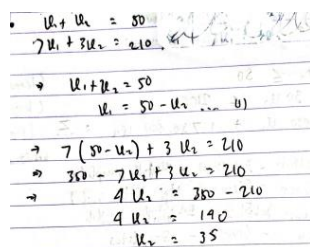 • u₁ + u₂ = 50
7u₁ + 3u₂ = 210
→ u₁ + u₂ = 50
u₁ = 50 - u₂ ... 1)
→ 7(50 - u₂) + 3u₂ = 210
⇒ 350 - 7u₂ + 3u₂ = 210
→ 4u₂ = 350 - 210
4u₂ = 140
u₂ = 35